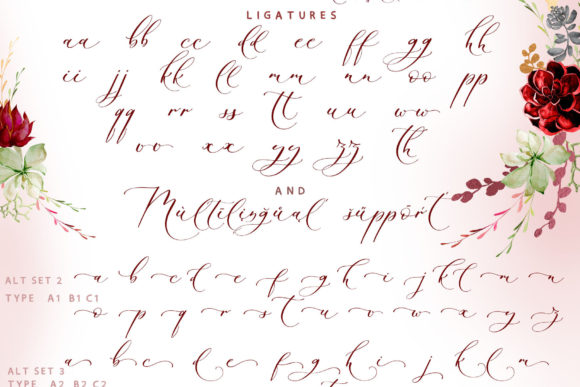 LIGATURES
aa bb cc dd ee ff gg hh
ii jj kk ll mm nn oo pp
qq rr ss tt uu ww
vv xx yy zz th
AND
Mùltilingùal sùppört
ALT SET 2
TYPE A1 B1 C1
a b c d e f g h i j k l m n
o p q r s t u v w x y z
ALT SET 3
TYPE A2 B2 C2
a b c d e f g h i j k l m